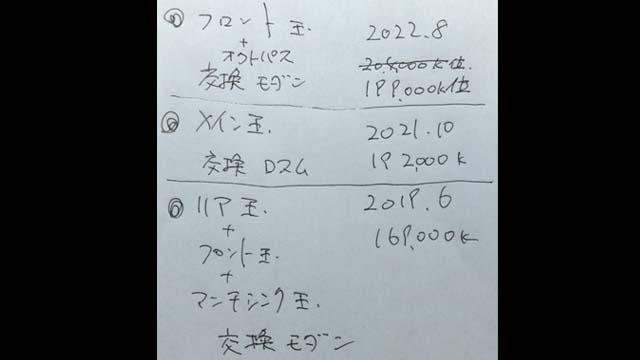 ◎ フロント玉 2022.8
+
オクトパス 208,000K位.
交換 モダン 199,000K位
◎ メイン玉. 2021.10
交換 Dスム 192,000K
◎ リア玉. 2019.6
+ 169,000K
フロント玉.
+
マンチシンク玉.
交換 モダン